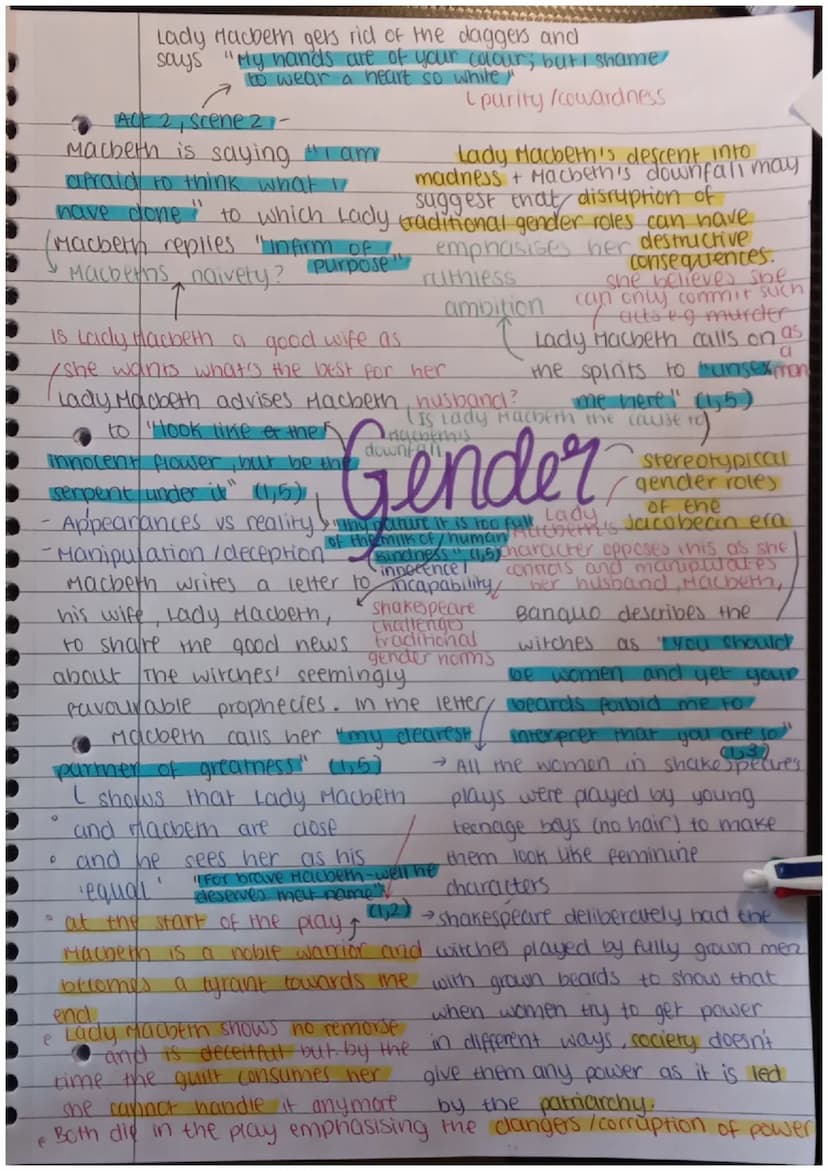 Lady Macbeth gets rid of the daggers and
says "My hands are of your colour; but I shame
to wear a heart so white"
purity/cowardness
Act 2, scene 2 -
Macbeth is saying "I am
afraid to think what I
have done" to which Lady
Macbeth replies "Infirm of
purpose"
Macbeths naivety?
Lady Macbeth's descent into
madness + Macbeth's downfall may
suggest that disruption of
traditional gender roles can have
destructive
consequences.
emphasises her
ruthless
ambition
she believes she
can only commit such
acts e.g murder
as
a
man
Is Lady Macbeth a good wife as
she wants what's the best for her
husband?
Lady Macbeth calls on
the spirits to "unsex
me here" (1,5)
Lady Macbeth advises Macbeth
to "look like the
innocent flower, but be the
serpent under it" (1,5)
(Is Lady Macbeth the cause to
Macbeth's
downfall
Gender
stereotypical
gender roles
of the
Jacobean era
- Appearances vs reality
- Manipulation/deception
"thy nature it is too full
of the milk of human
kindness" (1,5)
innocence/
incapability
Lady
Macbeth's
character opposes this as she
controls and manipulates
her husband, Macbeth,
Macbeth writes a letter to
his wife, Lady Macbeth,
to share the good news
about The witches' seemingly
favourable prophecies. In the letter
Macbeth calls her "my dearest
partner of greatness" (1,5)
shakespeare
challenges
traditional
gender norms
Banquo describes the
witches as "you should
be women and yet your
beards forbid me to
interpret that you are so"
(1,3)
shows that Lady Macbeth
and Macbeth are close
and he sees her as his
'equal'
"For brave Macbeth-well he
deserves that name"
(1,2)
→ All the women in shakespeares
plays were played by young
teenage boys (no hair) to make
them look like feminine
characters
→ shakespeare deliberately had the
witches played by fully grown men
with grown beards to show that
when women try to get power
in different ways, society doesn't
give them any power as it is led
by the patriarchy.
at the start of the play
Macbeth is a noble warrior and
becomes a tyrant towards the
end
Lady Macbeth shows no remorse
and is deceitful but by the
time the guilt consumes her
she cannot handle it anymore
Both die in the play emphasising the dangers/corruption of power